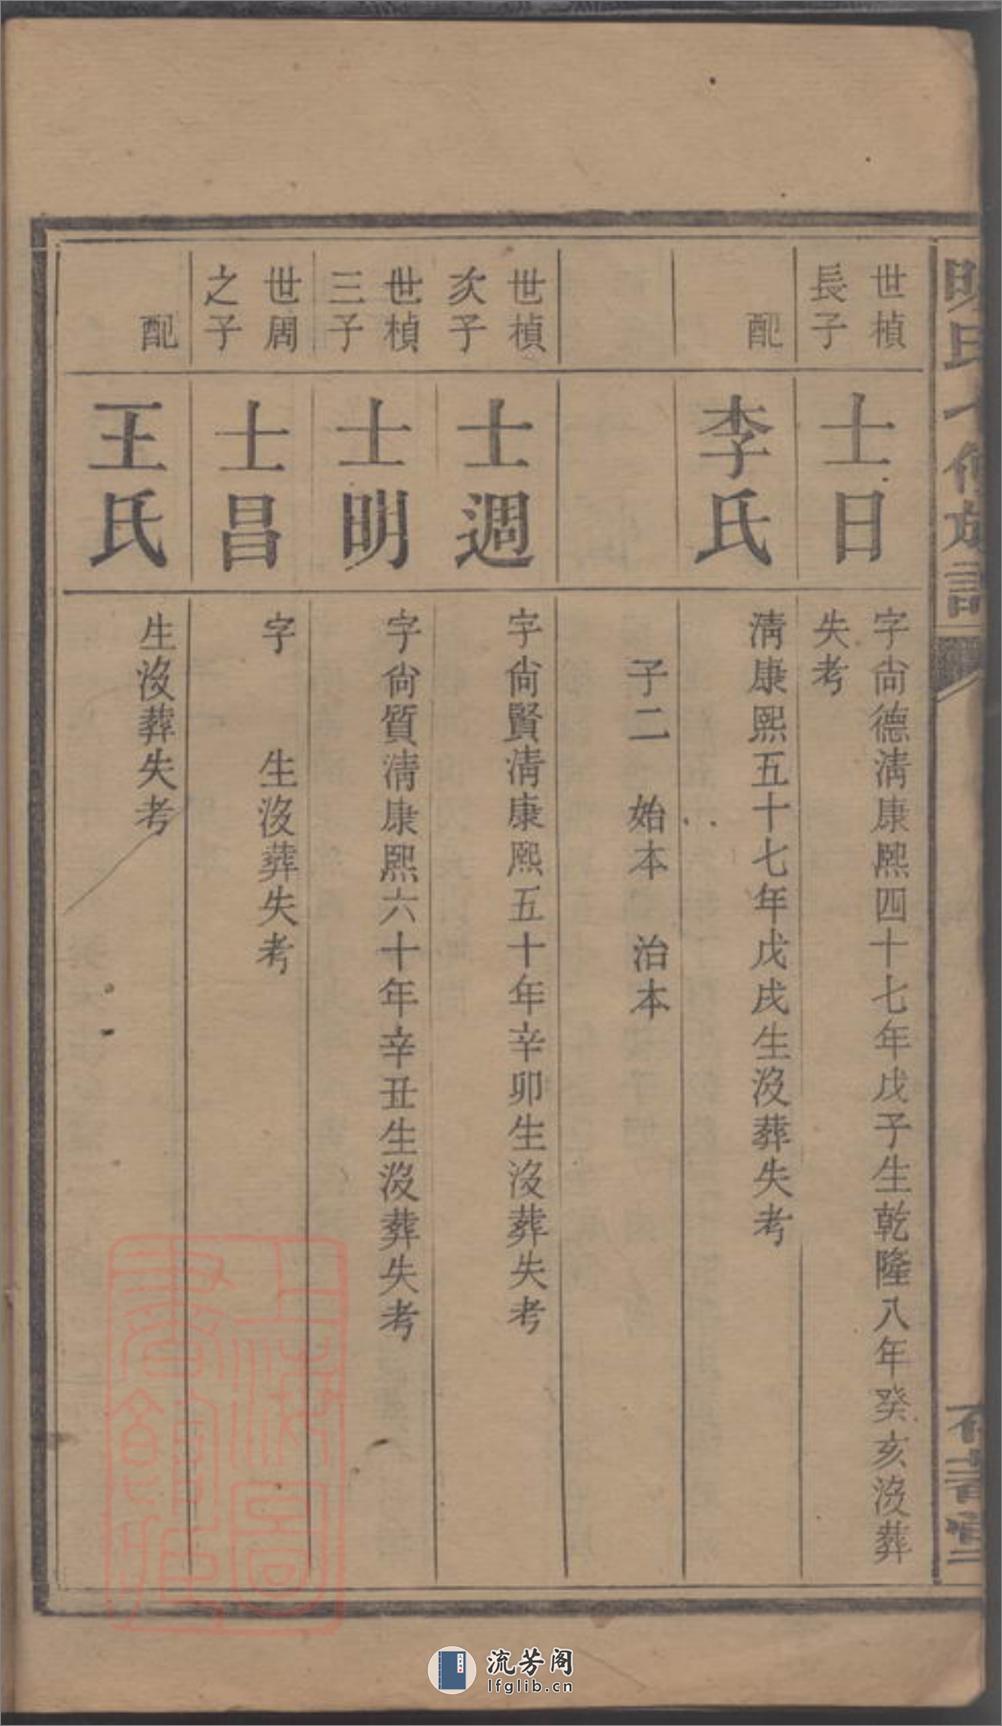 世楨
長子
士日
字尙德淸康熙四十七年戊子生乾隆八年癸亥沒葬
失考
配
李氏
淸康熙五十七年戊戌生沒葬失考
子二 始本 治本
世楨
次子
士週
字尙賢淸康熙五十年辛卯生沒葬失考
世楨
三子
士明
字尙質淸康熙六十年辛丑生沒葬失考
世周
之子
士昌
字 生沒葬失考
配
王氏
生沒葬失考
上海圖
書館藏
流芳阁
lfglib.cn